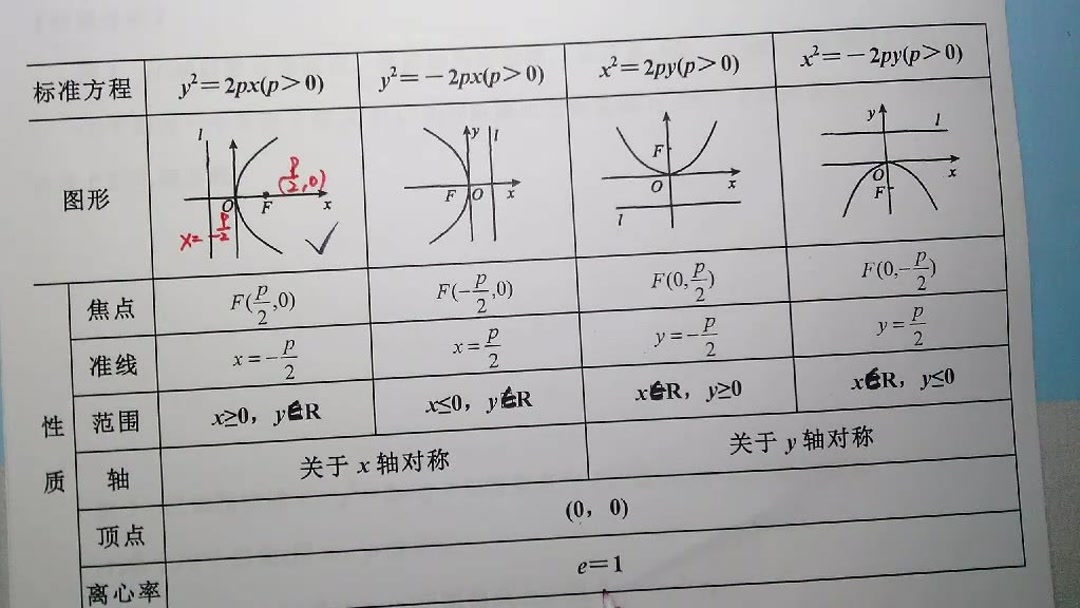 标准方程 y²=2px(p>0) y²=-2px(p>0) x²=2py(p>0) x²=-2py(p>0)
图形
l O F x (p/2,0) x=-p/2
y l F O x
F O x l
y l O F x
性质
焦点 F(p/2,0) F(-p/2,0) F(0,p/2) F(0,-p/2)
准线 x=-p/2 x=p/2 y=-p/2 y=p/2
范围 x≥0，y∈R x≤0，y∈R x∈R，y≥0 x∈R，y≤0
轴 关于 x 轴对称 关于 y 轴对称
顶点 (0，0)
离心率 e=1